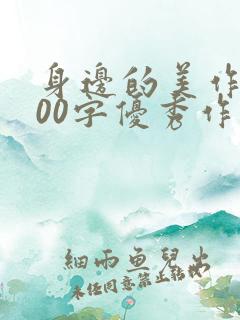 身邊的美作
00字優秀作
細雨魚兒出
未经同意禁止转载